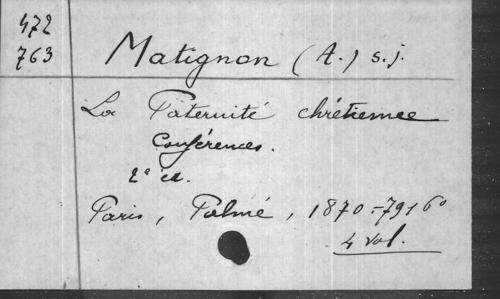 472
763
Matignon (A.) s.j.
La Paternité chrétienne
Conférences.
2e éd.
Paris, Palmé, 1870-79, 6°
4 vol.